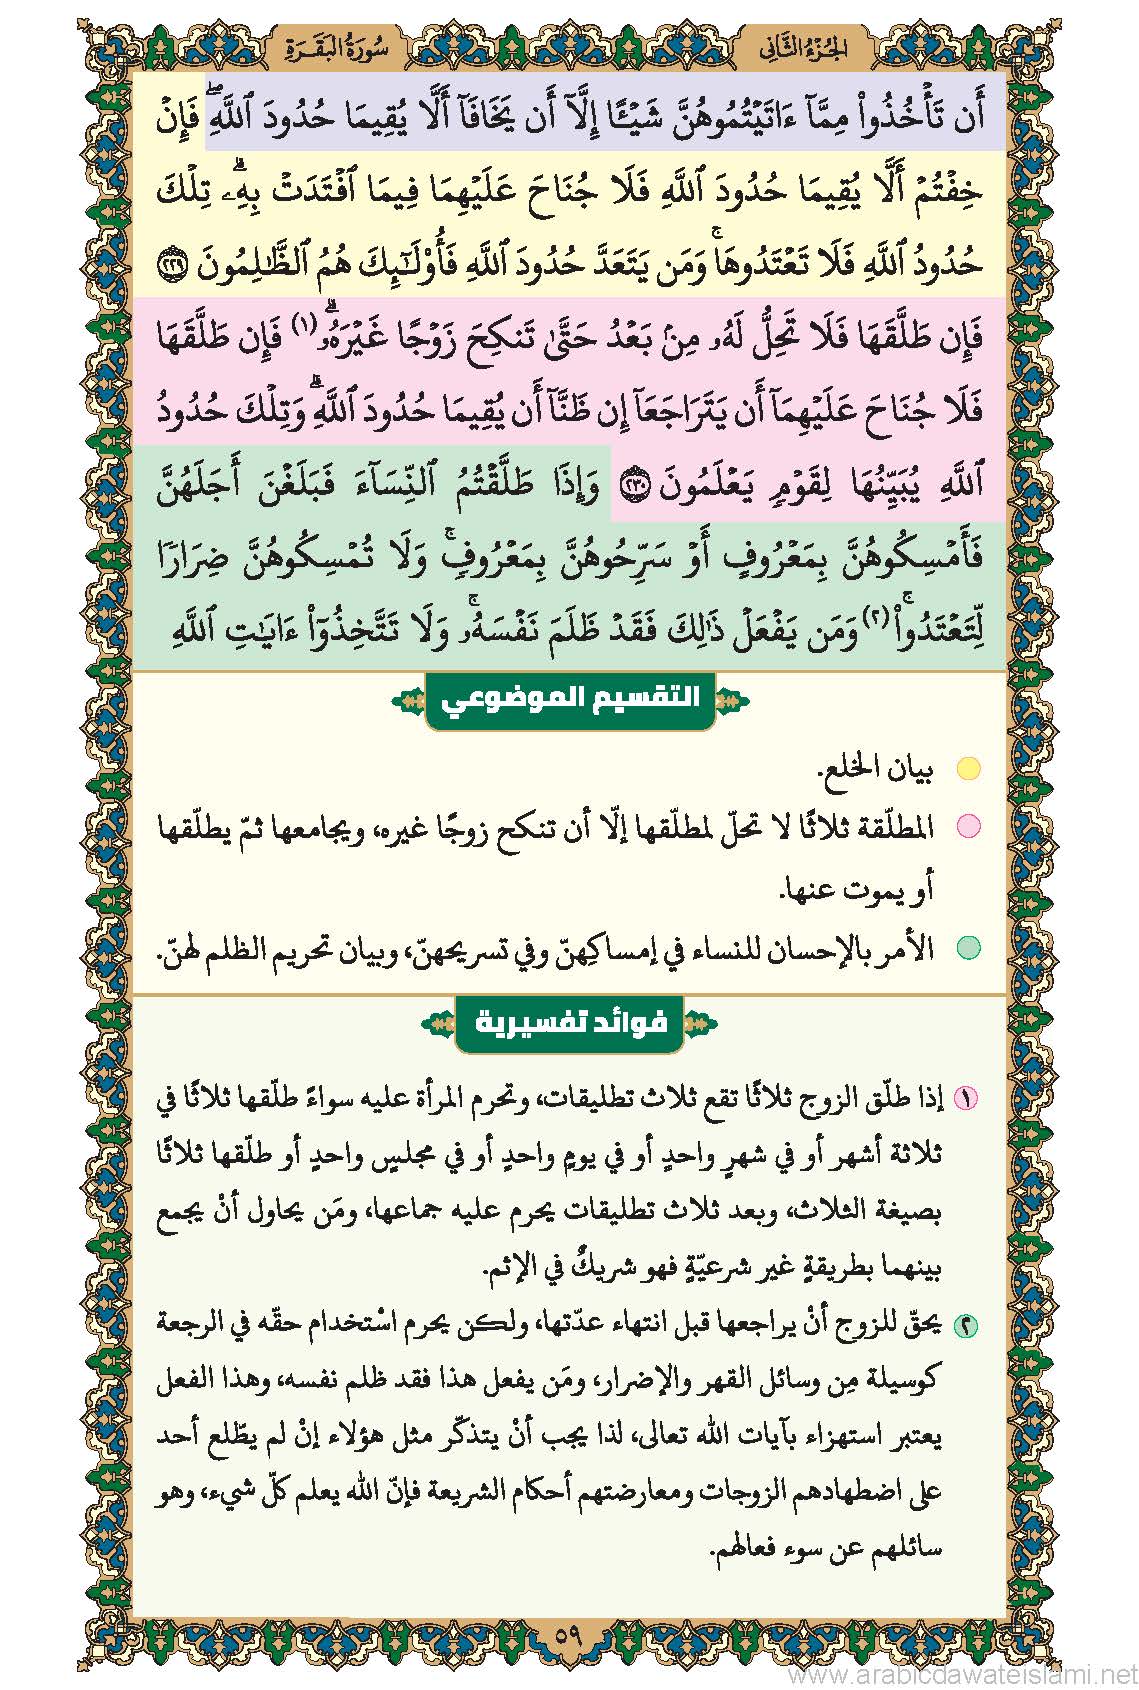 الجُزْءُ الثَّانِي
سُورَةُ البَقَرَةِ
أَن تَأۡخُذُواْ مِمَّآ ءَاتَيۡتُمُوهُنَّ شَيۡـًٔا إِلَّآ أَن يَخَافَآ أَلَّا يُقِيمَا حُدُودَ ٱللَّهِۖ فَإِنۡ
خِفۡتُمۡ أَلَّا يُقِيمَا حُدُودَ ٱللَّهِ فَلَا جُنَاحَ عَلَيۡهِمَا فِيمَا ٱفۡتَدَتۡ بِهِۦۗ تِلۡكَ
حُدُودُ ٱللَّهِ فَلَا تَعۡتَدُوهَاۚ وَمَن يَتَعَدَّ حُدُودَ ٱللَّهِ فَأُوْلَٰٓئِكَ هُمُ ٱلظَّٰلِمُونَ ٢٢٩
فَإِن طَلَّقَهَا فَلَا تَحِلُّ لَهُۥ مِنۢ بَعۡدُ حَتَّىٰ تَنكِحَ زَوۡجًا غَيۡرَهُۥۗ (١) فَإِن طَلَّقَهَا
فَلَا جُنَاحَ عَلَيۡهِمَآ أَن يَتَرَاجَعَآ إِن ظَنَّآ أَن يُقِيمَا حُدُودَ ٱللَّهِۗ وَتِلۡكَ حُدُودُ
ٱللَّهِ يُبَيِّنُهَا لِقَوۡمٖ يَعۡلَمُونَ ٢٣٠ وَإِذَا طَلَّقۡتُمُ ٱلنِّسَآءَ فَبَلَغۡنَ أَجَلَهُنَّ
فَأَمۡسِكُوهُنَّ بِمَعۡرُوفٍ أَوۡ سَرِّحُوهُنَّ بِمَعۡرُوفٖۚ وَلَا تُمۡسِكُوهُنَّ ضِرَارٗا
لِّتَعۡتَدُواْۚ (٢) وَمَن يَفۡعَلۡ ذَٰلِكَ فَقَدۡ ظَلَمَ نَفۡسَهُۥۚ وَلَا تَتَّخِذُوٓاْ ءَايَٰتِ ٱللَّهِ
التقسيم الموضوعي
بيان الخلع.
المطلّقة ثلاثًا لا تحلّ لمطلّقها إلّا أن تنكح زوجًا غيره، ويجامعها ثمّ يطلّقها
أو يموت عنها.
الأمر بالإحسان للنساء في إمساكِهنّ وفي تسريحهنّ، وبيان تحريم الظلم لهنّ.
فوائد تفسيرية
١ إذا طلّق الزوج ثلاثًا تقع ثلاث تطليقات، وتحرم المرأة عليه سواءً طلّقها ثلاثًا في
ثلاثة أشهر أو في شهرٍ واحدٍ أو في يومٍ واحدٍ أو في مجلسٍ واحدٍ أو طلّقها ثلاثًا
بصيغة الثلاث، وبعد ثلاث تطليقات يحرم عليه جماعها، ومَن يحاول أنْ يجمع
بينهما بطريقةٍ غير شرعيّةٍ فهو شريكٌ في الإثم.
٢ يحقّ للزوج أنْ يراجعها قبل انتهاء عدّتها، ولكن يحرم اسْتخدام حقّه في الرجعة
كوسيلة مِن وسائل القهر والإضرار، ومَن يفعل هذا فقد ظلم نفسه، وهذا الفعل
يعتبر استهزاء بآيات الله تعالى، لذا يجب أنْ يتذكّر مثل هؤلاء إنْ لم يطّلع أحد
على اضطهادهم الزوجات ومعارضتهم أحكام الشريعة فإنّ الله يعلم كلّ شيء، وهو
سائلهم عن سوء فعالهم.
٥٩
www.arabicdawateislami.net